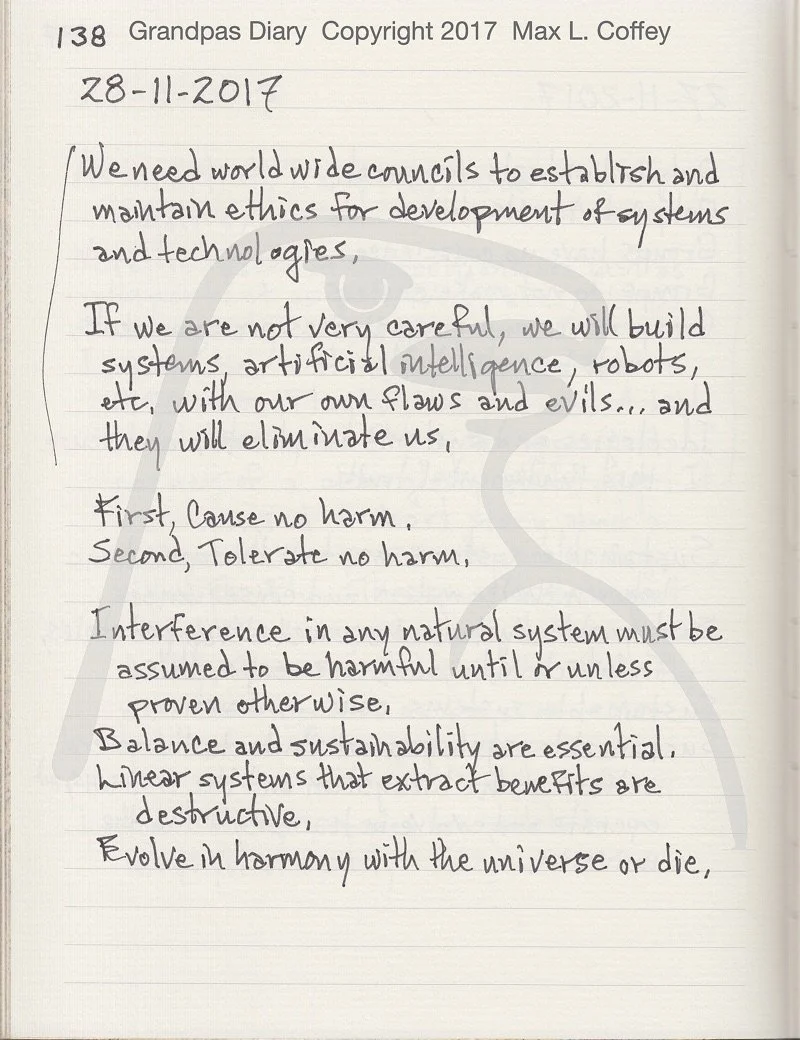 138 Grandpas Diary Copyright 2017 Max L. Coffey
28-11-2017
We need world wide councils to establish and
maintain ethics for development of systems
and technologies.
If we are not very careful, we will build
systems, artificial intelligence, robots,
etc. with our own flaws and evils... and
they will eliminate us.
First, Cause no harm.
Second, Tolerate no harm.
Interference in any natural system must be
assumed to be harmful until or unless
proven otherwise.
Balance and sustainability are essential.
Linear systems that extract benefits are
destructive.
Evolve in harmony with the universe or die.